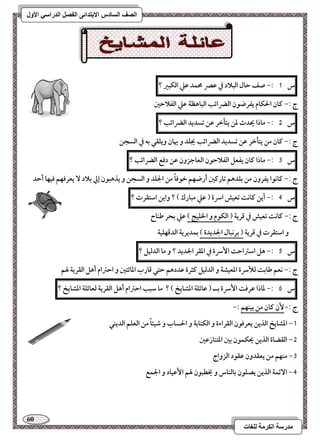 الصف السادس الابتدائى الفصل الدراسي الأول
عائلة المشايخ
س 1 :- صف حال البلاد في عصر محمد علي الكبير ؟
ج :- كان الحكام يفرضون الضرائب الباهظة علي الفلاحين
س 2 :- ماذا يحدث لمن يتأخر عن تسديد الضرائب ؟
ج :- كان من يتأخر عن تسديد الضرائب يجلد و يهان ويلقي به في السجن
س 3 :- ماذا كان يفعل الفلاحون العاجزون عن دفع الضرائب ؟
ج :- كانوا يفرون من بلدهم تاركين أرضهم خوفاً من الجلد و السجن و يذهبون إلي بلاد لا يعرفهم فيها أحد
س 4 :- أين كانت تعيش اسرة ( علي مبارك ) ؟ واين استقرت ؟
ج :- كانت تعيش في قرية ( الكوم و الخليج ) علي بحر طناح
و استقرت في قرية ( برنبال الجديدة ) بمديرية الدقهلية
س 5 :- هل استراحت الأسرة في المقر الجديد ؟ و ما الدليل ؟
ج :- نعم طابت للأسرة المعيشة و الدليل كثرة عددهم حتي قارب المائتين و احترام أهل القرية لهم
س 6 :- لماذا عرفت الأسرة بـ ( عائلة المشايخ ) ؟ ما سبب احترام أهل القرية لعائلة المشايخ ؟
ج :- لأن كان من بينهم :-
1- المشايخ الذين يعرفون القراءة و الكتابة و الحساب و شيئاً من العلم الديني
2- القضاة الذين يحكمون بين المتنازعين
3- منهم من يعقدون عقود الزواج
4- الائمة الذين يصلون بالناس و يخطبون لهم الأعياد و الجمع
60
مدرسة الكرمة للغات